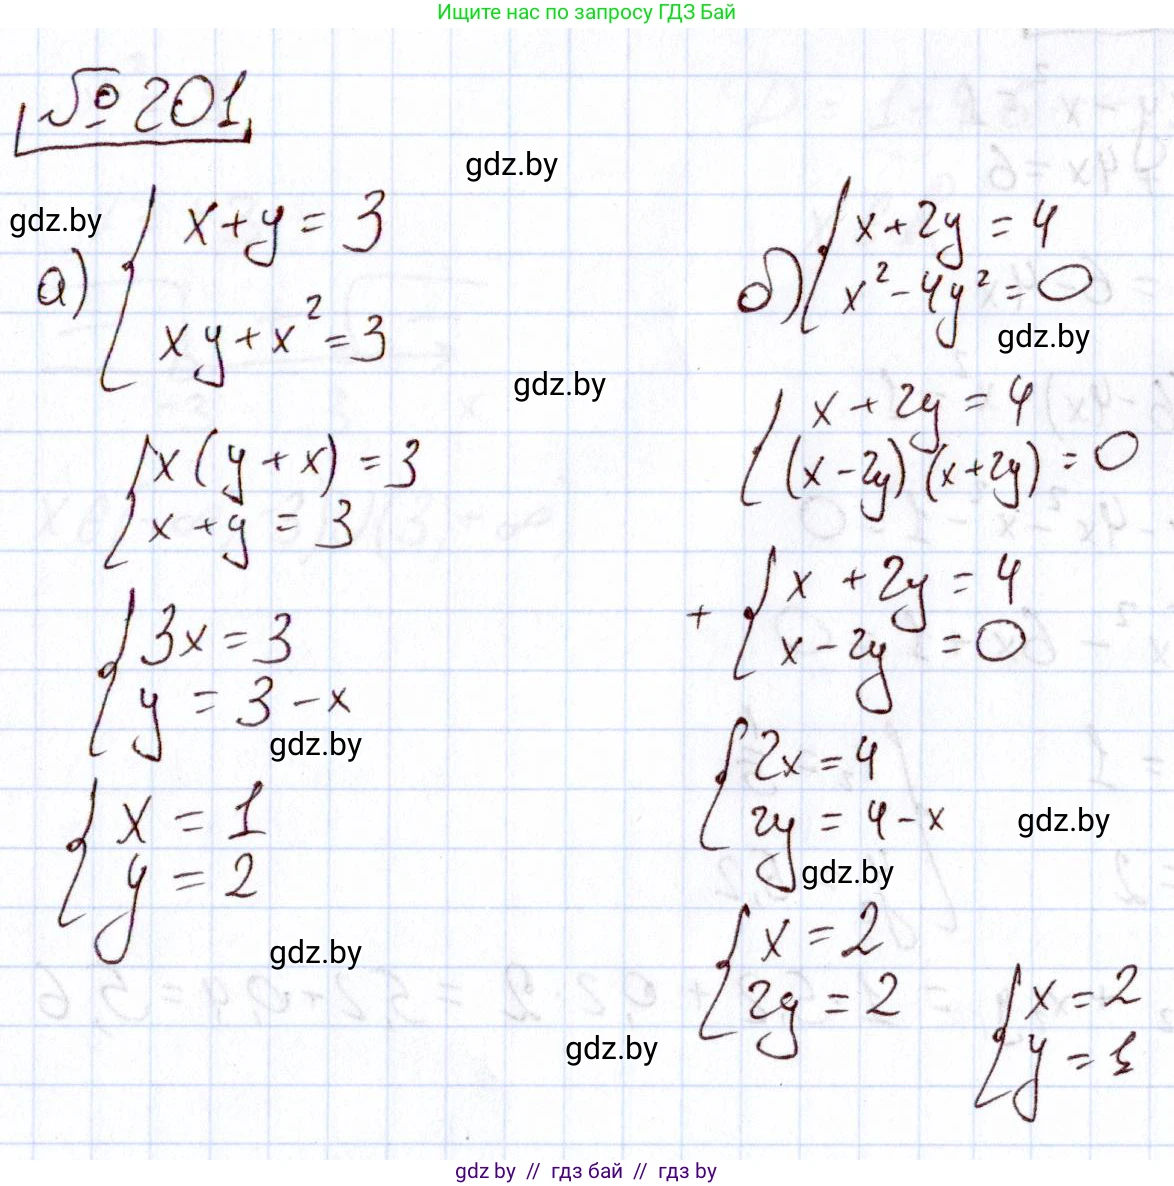 Ищите нас по запросу ГДЗ Бай
№ 201
gdz.by
gdz.by
а) { x + y = 3
xy + x² = 3
{ x(y + x) = 3
x + y = 3
{ 3x = 3
y = 3 - x
gdz.by
{ x = 1
y = 2
gdz.by
gdz.by
б) { x + 2y = 4
x² - 4y² = 0
gdz.by
{ x + 2y = 4
(x - 2y)(x + 2y) = 0
+ { x + 2y = 4
x - 2y = 0
{ 2x = 4
2y = 4 - x
gdz.by
gdz.by
{ x = 2
2y = 2
{ x = 2
y = 1
gdz.by
gdz by // гдз бай // gdz by